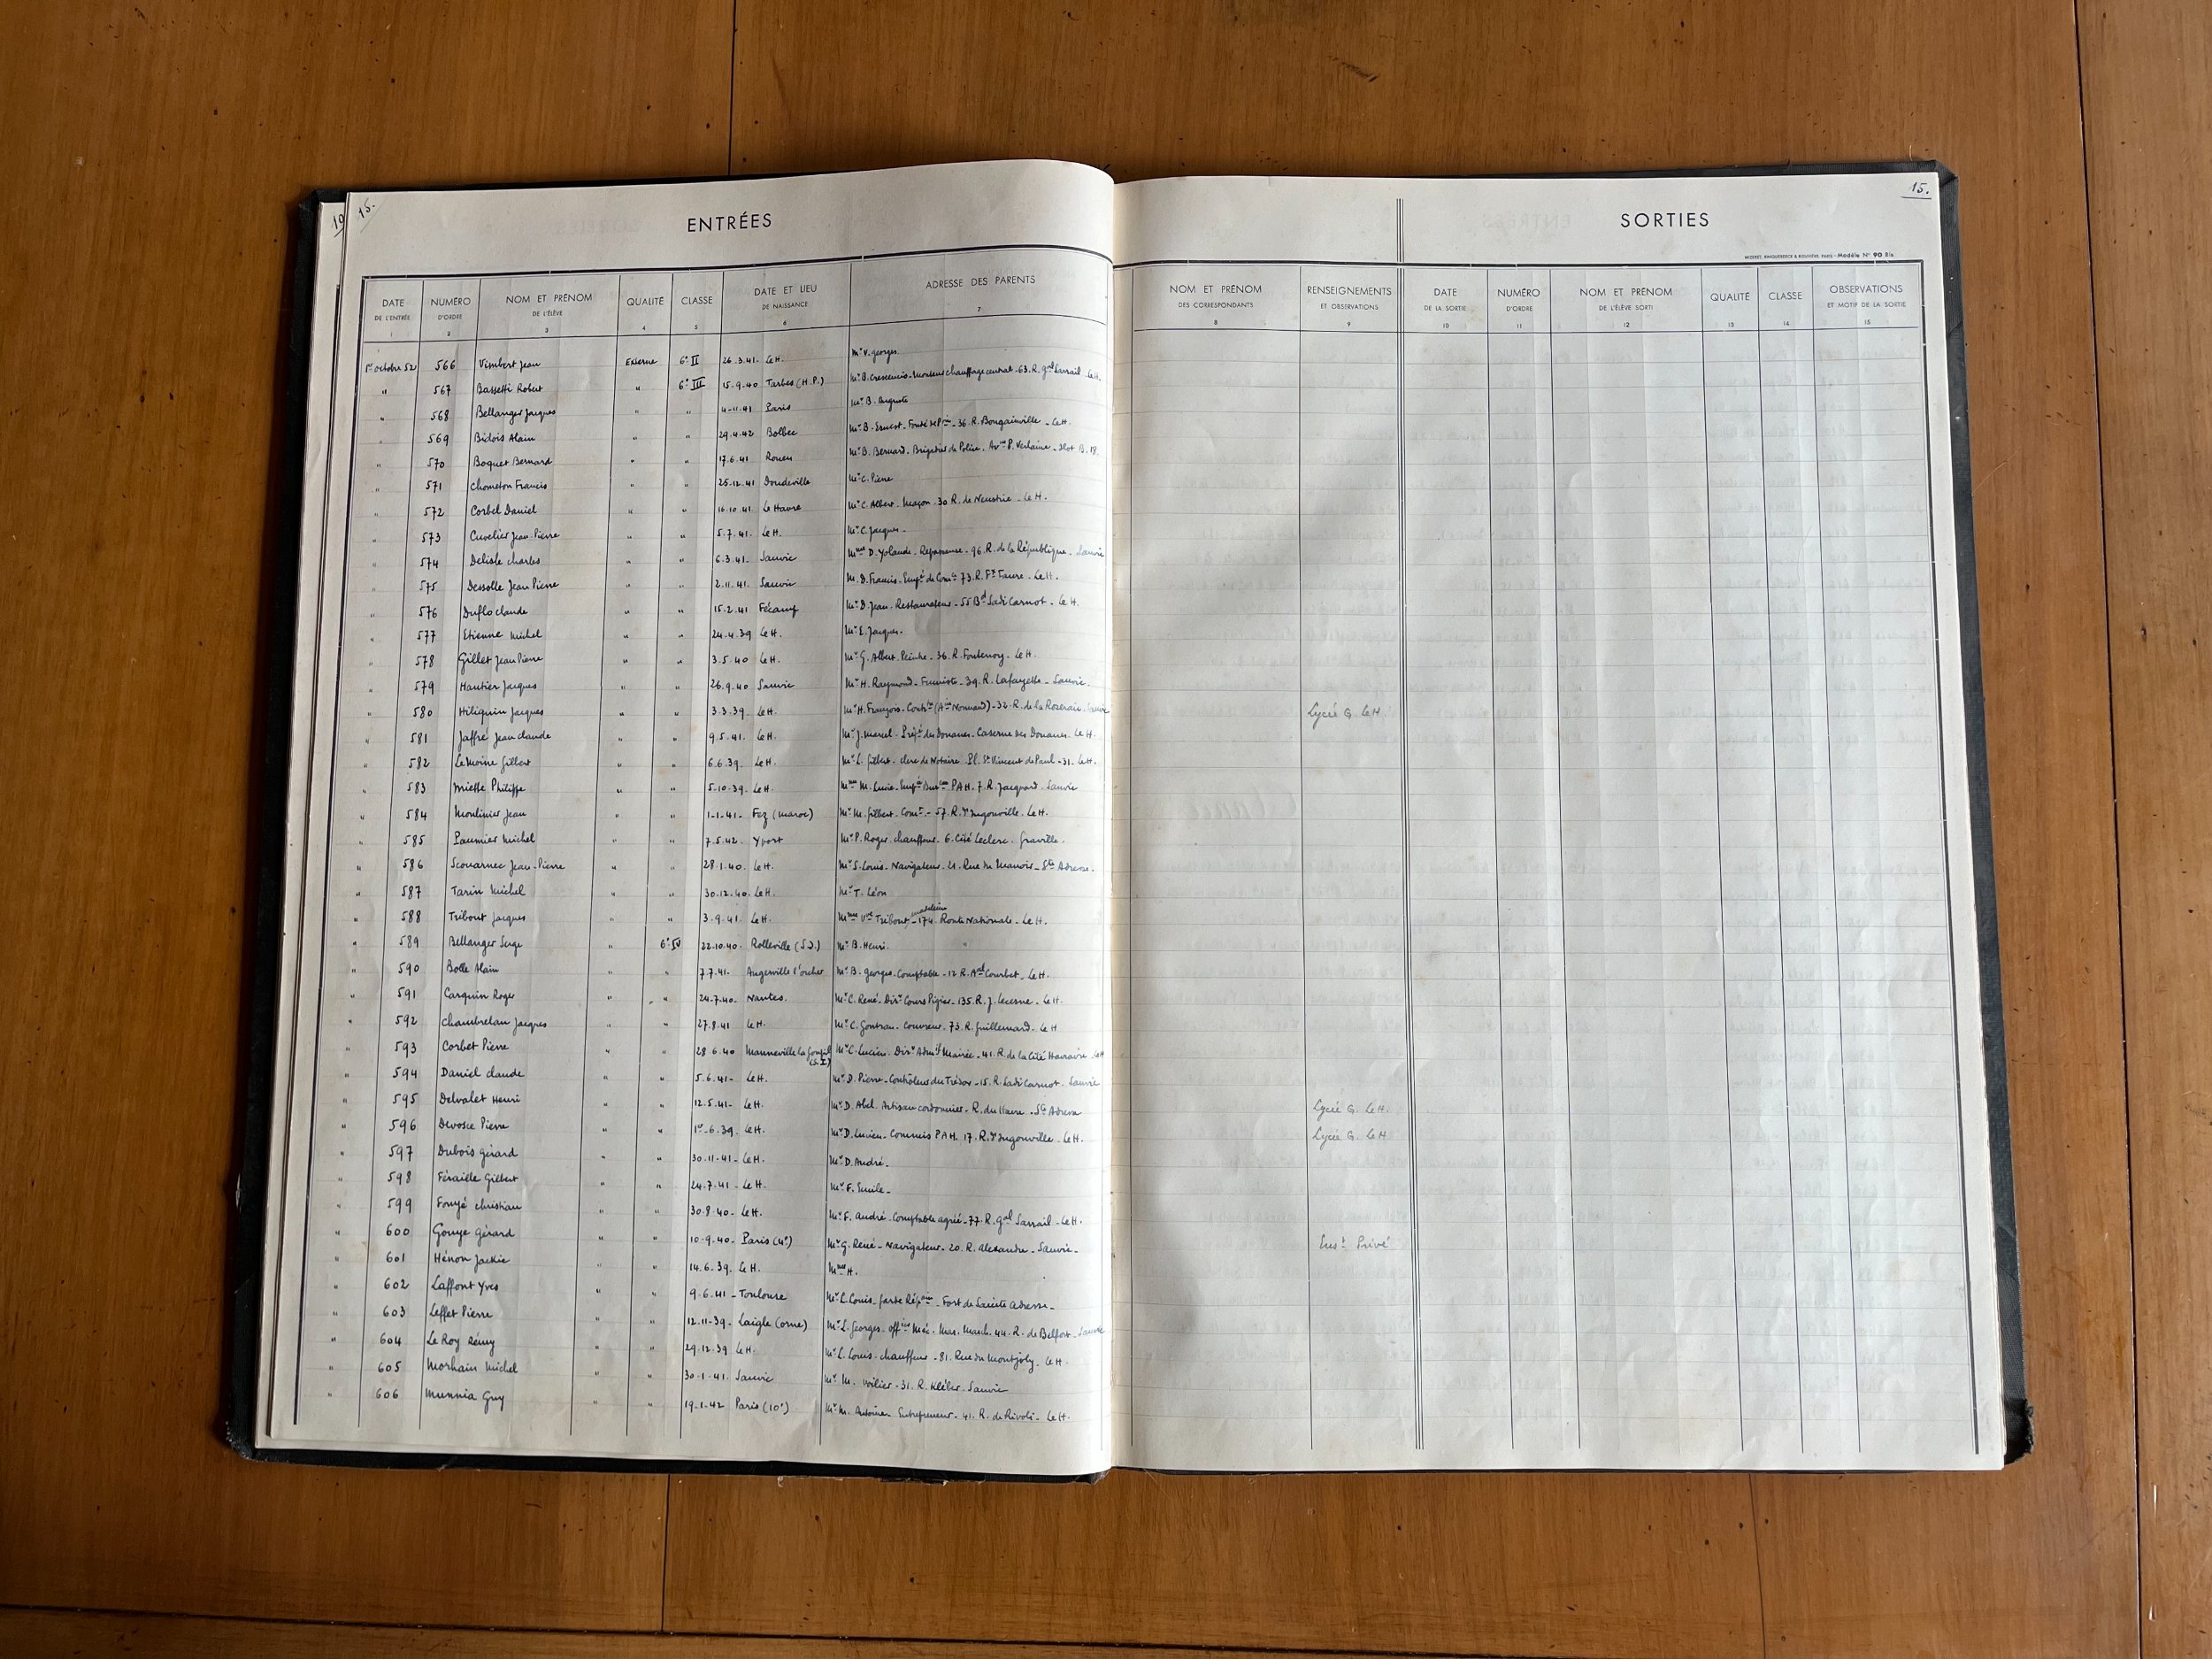 19
15.
ENTRÉES
DATE DE L'ENTRÉE 1 NUMÉRO D'ORDRE 2 NOM ET PRÉNOM DE L'ÉLÈVE 3 QUALITÉ 4 CLASSE 5 DATE ET LIEU DE NAISSANCE 6 ADRESSE DES PARENTS 7
1er octobre 52 566 Vimbert Jean Externe 6e II 26.3.41. Le H. Mr V. Georges
" 567 Bassetti Robert " 6e III 15.9.40 Tarbes (H.P.) Mr B. Crescencio - Monteur chauffage central - 63. R. Gal Sarrail - Le H.
" 568 Bellanger Jacques " " 4-11.41 Paris Mr B. Auguste
" 569 Bidois Alain " " 29.4.42 Bolbec Mr B. Ernest - 36. R. Bougainville - Le H.
" 570 Boquet Bernard " " 17.6.41 Rouen Mr B. Bernard. Brigadier de Police. Ave P. Verlaine - Ilot B. 18.
" 571 Chometon Francis " " 25.12.41 Doudeville Mr C. Pierre
" 572 Corbel Daniel " " 16.10.41. Le Havre Mr C. Albert - Maçon - 30 R. de Neustrie - Le H.
" 573 Cuvelier Jean-Pierre " " 5.7.41. Le H. Mr C. Jacques -
" 574 Delisle Charles " " 6.3.41. Sanvic Mme D. Yolande - Repasseuse - 96. R. de la République - Sanvic
" 575 Dessolle Jean Pierre " " 2.11.41. Sanvic M. D. Francis - Empé de Comce 73. R. Fx Faure - Le H.
" 576 Duflo Claude " " 15.2.41 Fécamp Mr D. Jean - Restaurateur - 55 Bd Sadi Carnot - Le H.
" 577 Etienne Michel " " 24.4.39 Le H. Mr E. Jacques.
" 578 Gillet Jean Pierre " " 3.5.40 Le H. Mr G. Albert - Peintre - 36. R. Fontenoy - Le H.
" 579 Hautier Jacques " " 26.9.40 Sanvic Mr H. Raymond - Fumiste - 39. R. Lafayette - Sanvic.
" 580 Hiliquin Jacques " " 3.3.39. Le H. Mr H. François - - 32. R. de la Roseraie. Sanvic
" 581 Jaffré Jean Claude " " 9.5.41. Le H. Mr J. Marcel - des Douanes. Caserne des Douanes. Le H.
" 582 Le Moine Gilbert " " 6.6.39. Le H. Mr L. Gilbert - clerc de Notaire Pl. St Vincent de Paul - 31 - Le H.
" 583 Mielle Philippe " " 5.10.39. Le H. Mme M. Lucie - PAH. 7. R. Jacquard - Sanvic
" 584 Moulinier Jean " " 1-1-41 - Fez (Maroc) Mr M. Gilbert. - 57. R. d'Ingouville. Le H.
" 585 Paumier Michel " " 7.5.42. Yport Mr P. Roger. chauffeur - 6. Cité Leclerc. Graville.
" 586 Scouarnec Jean-Pierre " " 28.1.40. Le H. Mr S. Louis. Navigateur. 21. Rue du Manoir - Ste Adresse.
" 587 Tarin Michel " " 30.12.40. Le H. Mr T. Léon
" 588 Tribout Jacques " " 3.9.41. Le H. Mme Vve Tribout Madeleine - 174. Route Nationale - Le H.
" 589 Bellanger Serge " 6e IV 22.10.40. Rolleville (S.I.) Mr B. Henri.
" 590 Bolle Alain " " 7.7.41 - Angerville l'orcher Mr B. Georges. Comptable - 12 R. Aal Courbet - Le H.
" 591 Carquin Roger " " 24.7.40. Nantes. Mr C. René - Dirr Cours Pigier - 135. R. J. Lecesne - Le H.
" 592 Chambrelan Jacques " " 27.8.41 Le H. Mr C. Gontran - Couvreur. 73. R. Guillemard. Le H
" 593 Corbet Pierre " " 28.6.40 Manneville la Goupil (S.I) Mr C. Lucien. Dirr Admtf Mairie - 41. R. de la Cité Havraise. Le H
" 594 Daniel Claude " " 5.6.41 - Le H. Mr D. Pierre - Contrôleur du Trésor - 15. R. Sadi Carnot - Sanvic
" 595 Delvalet Henri " " 12.5.41 - Le H. Mr D. Abel. Artisan cordonnier - R. du Havre - Ste Adresse
" 596 Devosse Pierre " " 1er-6.39. Le H. Mr D. Lucien - Commis P A H. 17. R. d'Ingouville - Le H.
" 597 Dubois Gérard " " 30.11.41 - Le H. Mr D. André.
" 598 Féraille Gilbert " " 24.7.41 - Le H. Mr F. Emile -
" 599 Fouyé Christian " " 30.8.40 - Le H. Mr F. André - Comptable agréé - 77. R. Gal Sarrail - Le H.
" 600 Gouye Gérard " " 10-9.40 - Paris (4e) Mr G. René - Navigateur - 20. R. Alexandre - Sanvic -
" 601 Hénon Jackie " " 14.6.39. Le H. Mme H.
" 602 Laffont Yves " " 9.6.41 - Toulouse Mr L. Louis - - Fort de Sainte Adresse -
" 603 Leffet Pierre " " 12.11.39 - Laigle (Orne) Mr L. Georges - Méc. Mar. March. 44. R. de Belfort - Sanvic
" 604 Le Roy Rémy " " 29.12.39 Le H. Mr L. Louis - chauffeur - 81. Rue du Montjoly - Le H.
" 605 Morhain Michel " " 30.1.41. Sanvic Mr M. voilier - 31. R. Kléber - Sanvic
" 606 Munnia Guy " " 19.1.42 Paris (10e) Mr M. Antoine Entrepreneur - 41. R. de Rivoli - Le H.
15.
SORTIES
Modèle N° 90 Bis
NOM ET PRÉNOM DES CORRESPONDANTS 8 RENSEIGNEMENTS ET OBSERVATIONS 9 DATE DE LA SORTIE 10 NUMÉRO D'ORDRE 11 NOM ET PRÉNOM DE L'ÉLÈVE SORTI 12 QUALITÉ 13 CLASSE 14 OBSERVATIONS ET MOTIF DE LA SORTIE 15
Lycée G. Le H
Lycée G. Le H.
Lycée G. Le H
Inst Privé